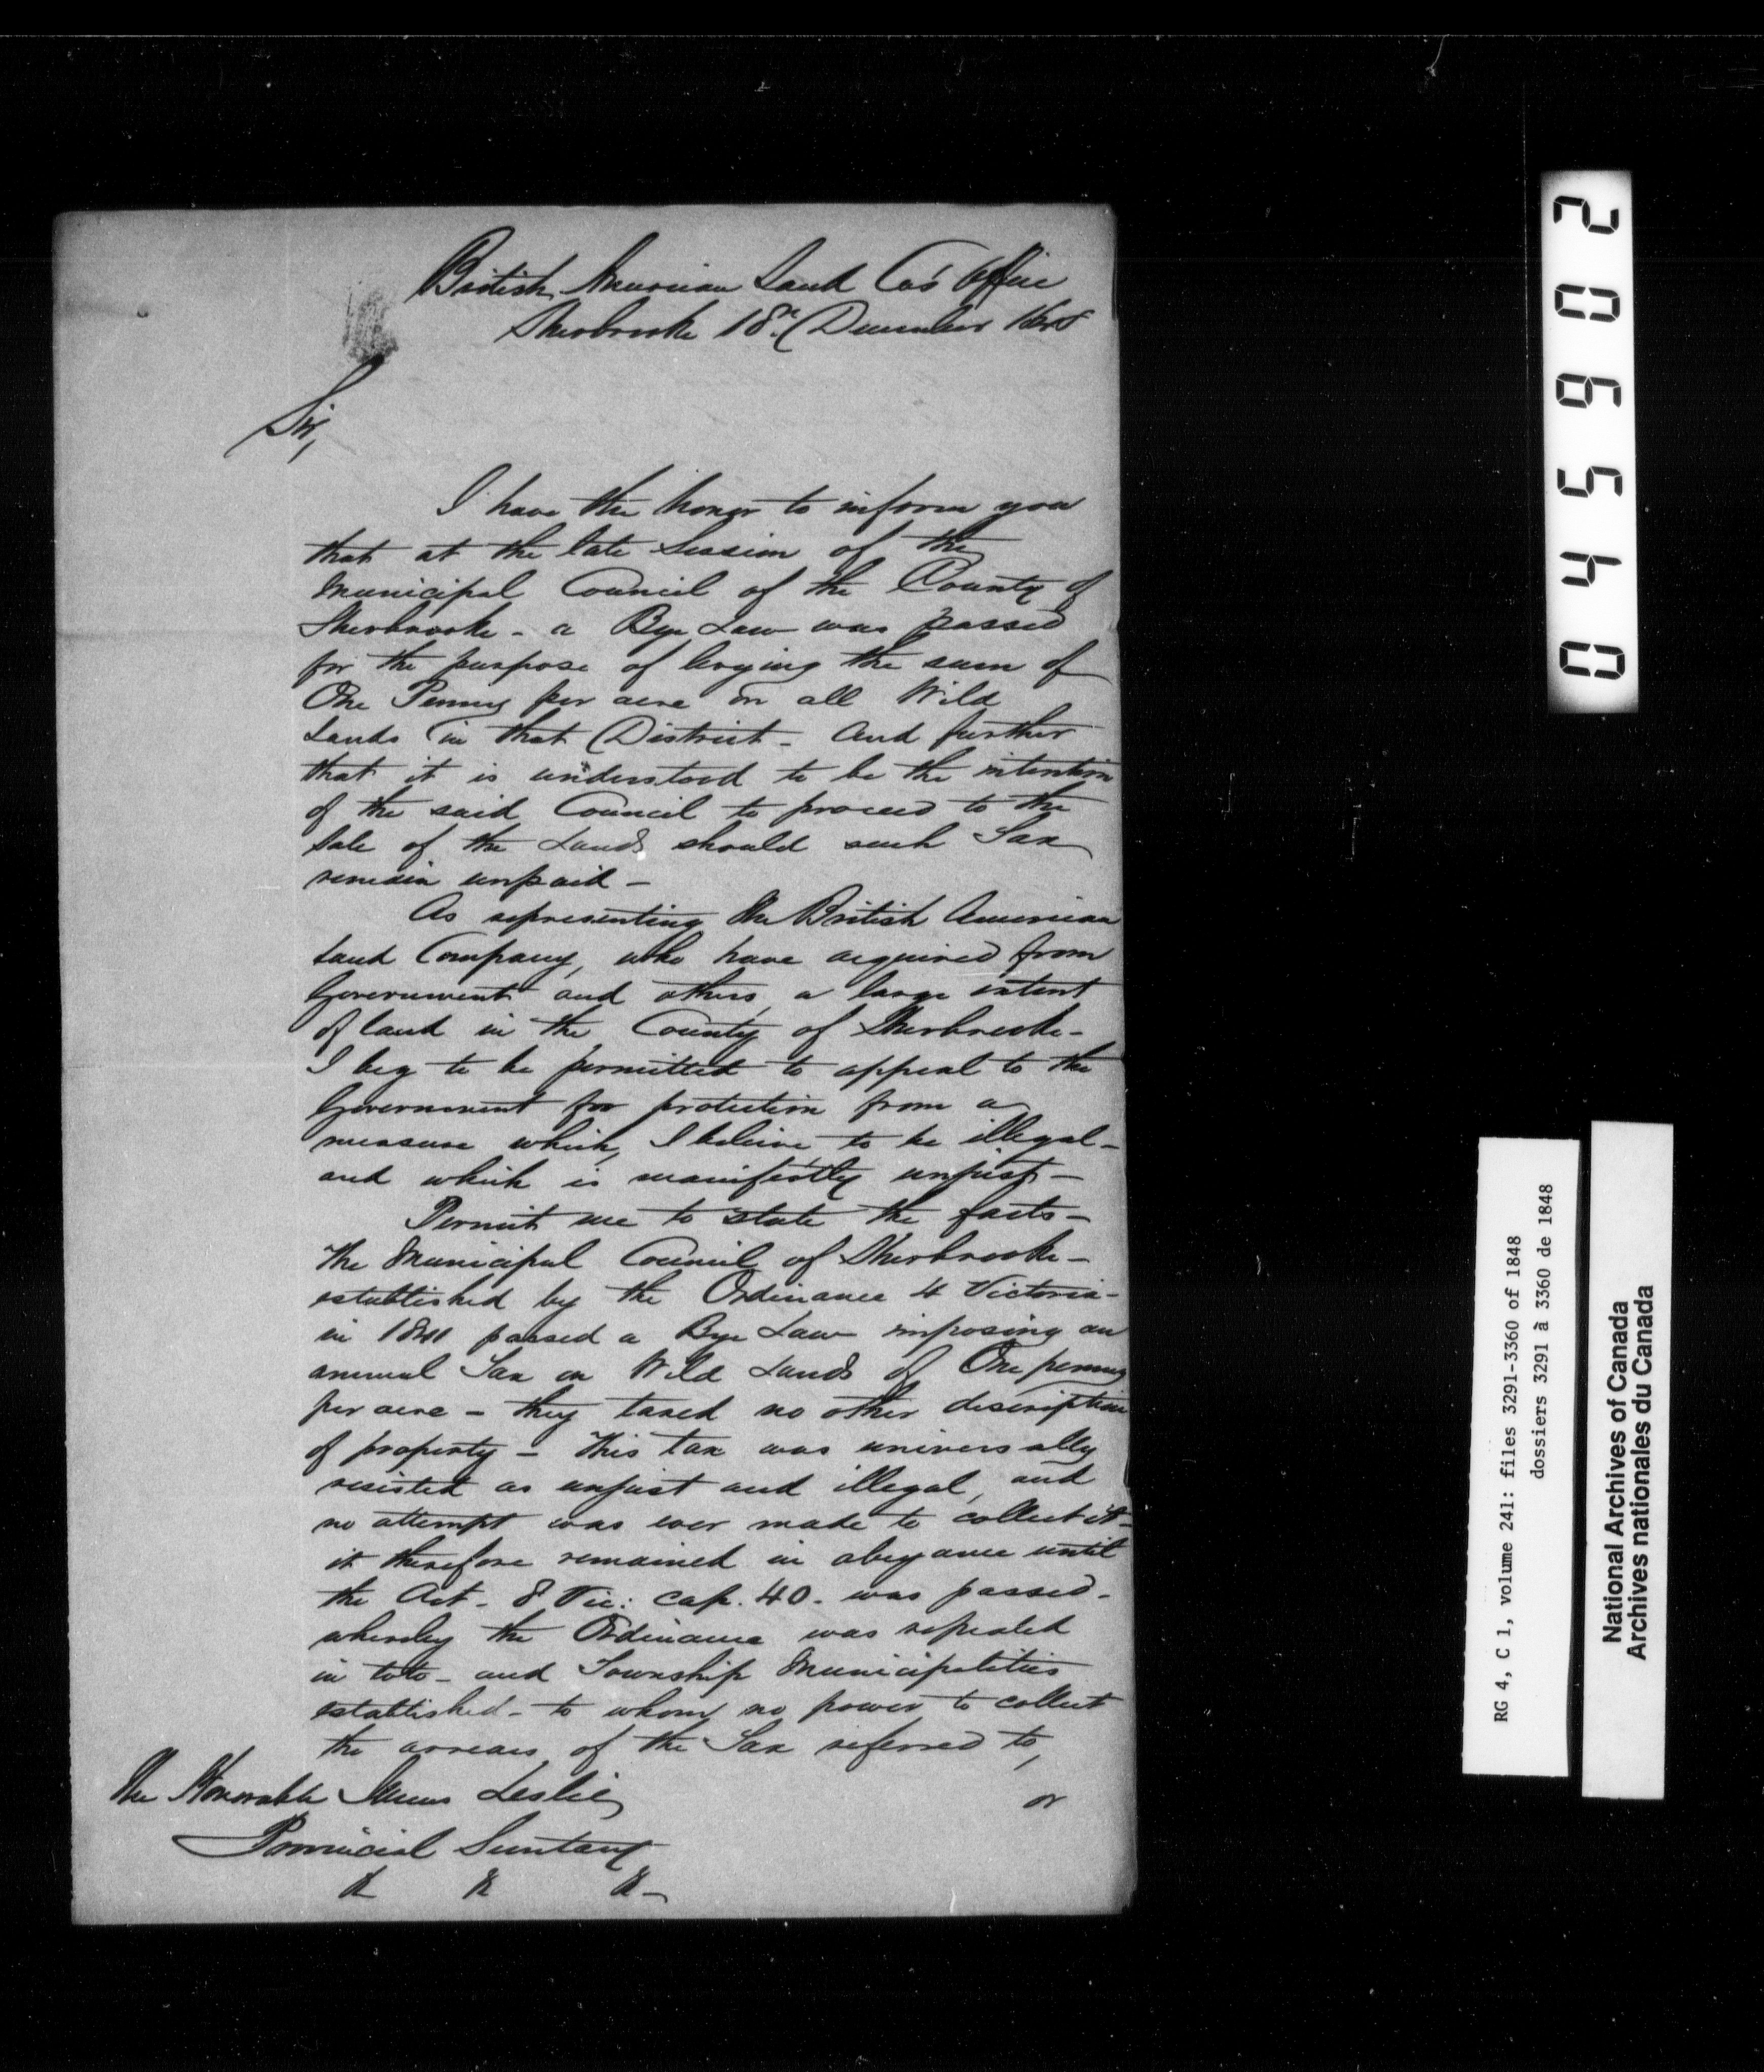 British American Land Co's Office
Sherbrooke 18th December 1848
Sir,
I have the honor to inform you
that at the late Session of the
Municipal Council of the County of
Sherbrooke - a Bye Law was passed
for the purpose of levying the sum of
One Penny per acre on all Wild
Lands in that District - And further
that it is understood to be the intention
of the said Council to proceed to the
Sale of the Lands should such Tax
remain unpaid -
As representing the British American
Land Company, who have acquired from
Government and others, a large extent
of land in the County of Sherbrooke -
I beg to be permitted to appeal to the
Government for protection from a
measure which, I believe, to be illegal -
and which is manifestly unjust -
Permit me to state the facts -
The Municipal Council of Sherbrooke -
established by the Ordinance 4 Victoria -
in 1841 passed a Bye Law imposing an
annual Tax on Wild Lands of One penny
per acre - they taxed no other description
of property - This tax was universally
resisted as unjust and illegal, and
no attempt was ever made to collect it -
it therefore remained in abeyance until
the Act - 8 Vic: Cap. 40 - was passed -
whereby the Ordinance was repealed
in toto - and Township Municipalities
established - to whom no power to collect
the arrears of the Tax referred to,
or
The Honorable James Leslie
Provincial Secretary
& & & -
0 4 5 6 0 2
RG 4, C 1, volume 241: files 3291-3360 of 1848
dossiers 3291 à 3360 de 1848
National Archives of Canada
Archives nationales du Canada